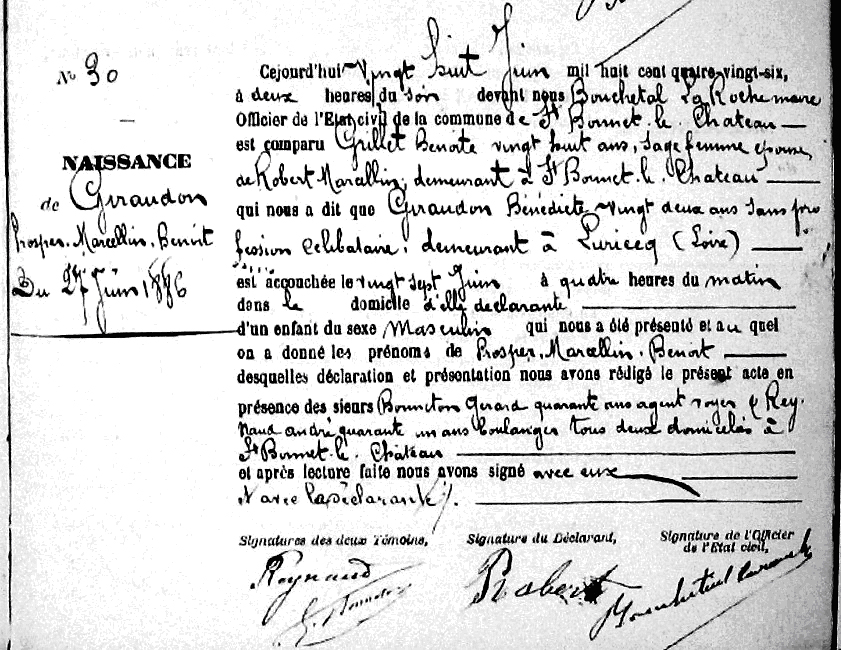 No 30
NAISSANCE
de Giraudon
Prosper. Marcellin. Benoit
Du 27 Juin 1886
Cejourd'hui vingt huit Juin mil huit cent quatre-vingt-six,
à deux heures du soir devant nous Bouchetal La Roche maire
Officier de l'Etat civil de la commune de St Bonnet. le. Chateau
est comparu Grillet Benoite vingt huit ans, sage femme epouse
de Robert Marcellin, demeurant à St Bonnet. le. Chateau
qui nous a dit que Giraudon Bénédicte vingt deux ans sans pro
fession célibataire, demeurant à Luriecq (Loire)
est accouchée le vingt sept Juin à quatre heures du matin
dans le domicile d'elle declarante
d'un enfant du sexe Masculin qui nous a été présenté et au quel
on a donné les prénoms de Prosper. Marcellin. Benoit
desquelles déclaration et présentation nous avons rédigé le présent acte en
présence des sieurs Bonneton Gerard quarante ans agent voyer & Rey.
naud andré quarante un ans boulanger tous deux domiciliés à
St Bonnet. le. Château
et après lecture faite nous avons signé avec eux
& avec la déclarante /.
Signatures des deux Témoins,
Signature du Déclarant,
Signature de l'Officier
de l'Etat civil,
Reynaud
Robert
G. Bonneton